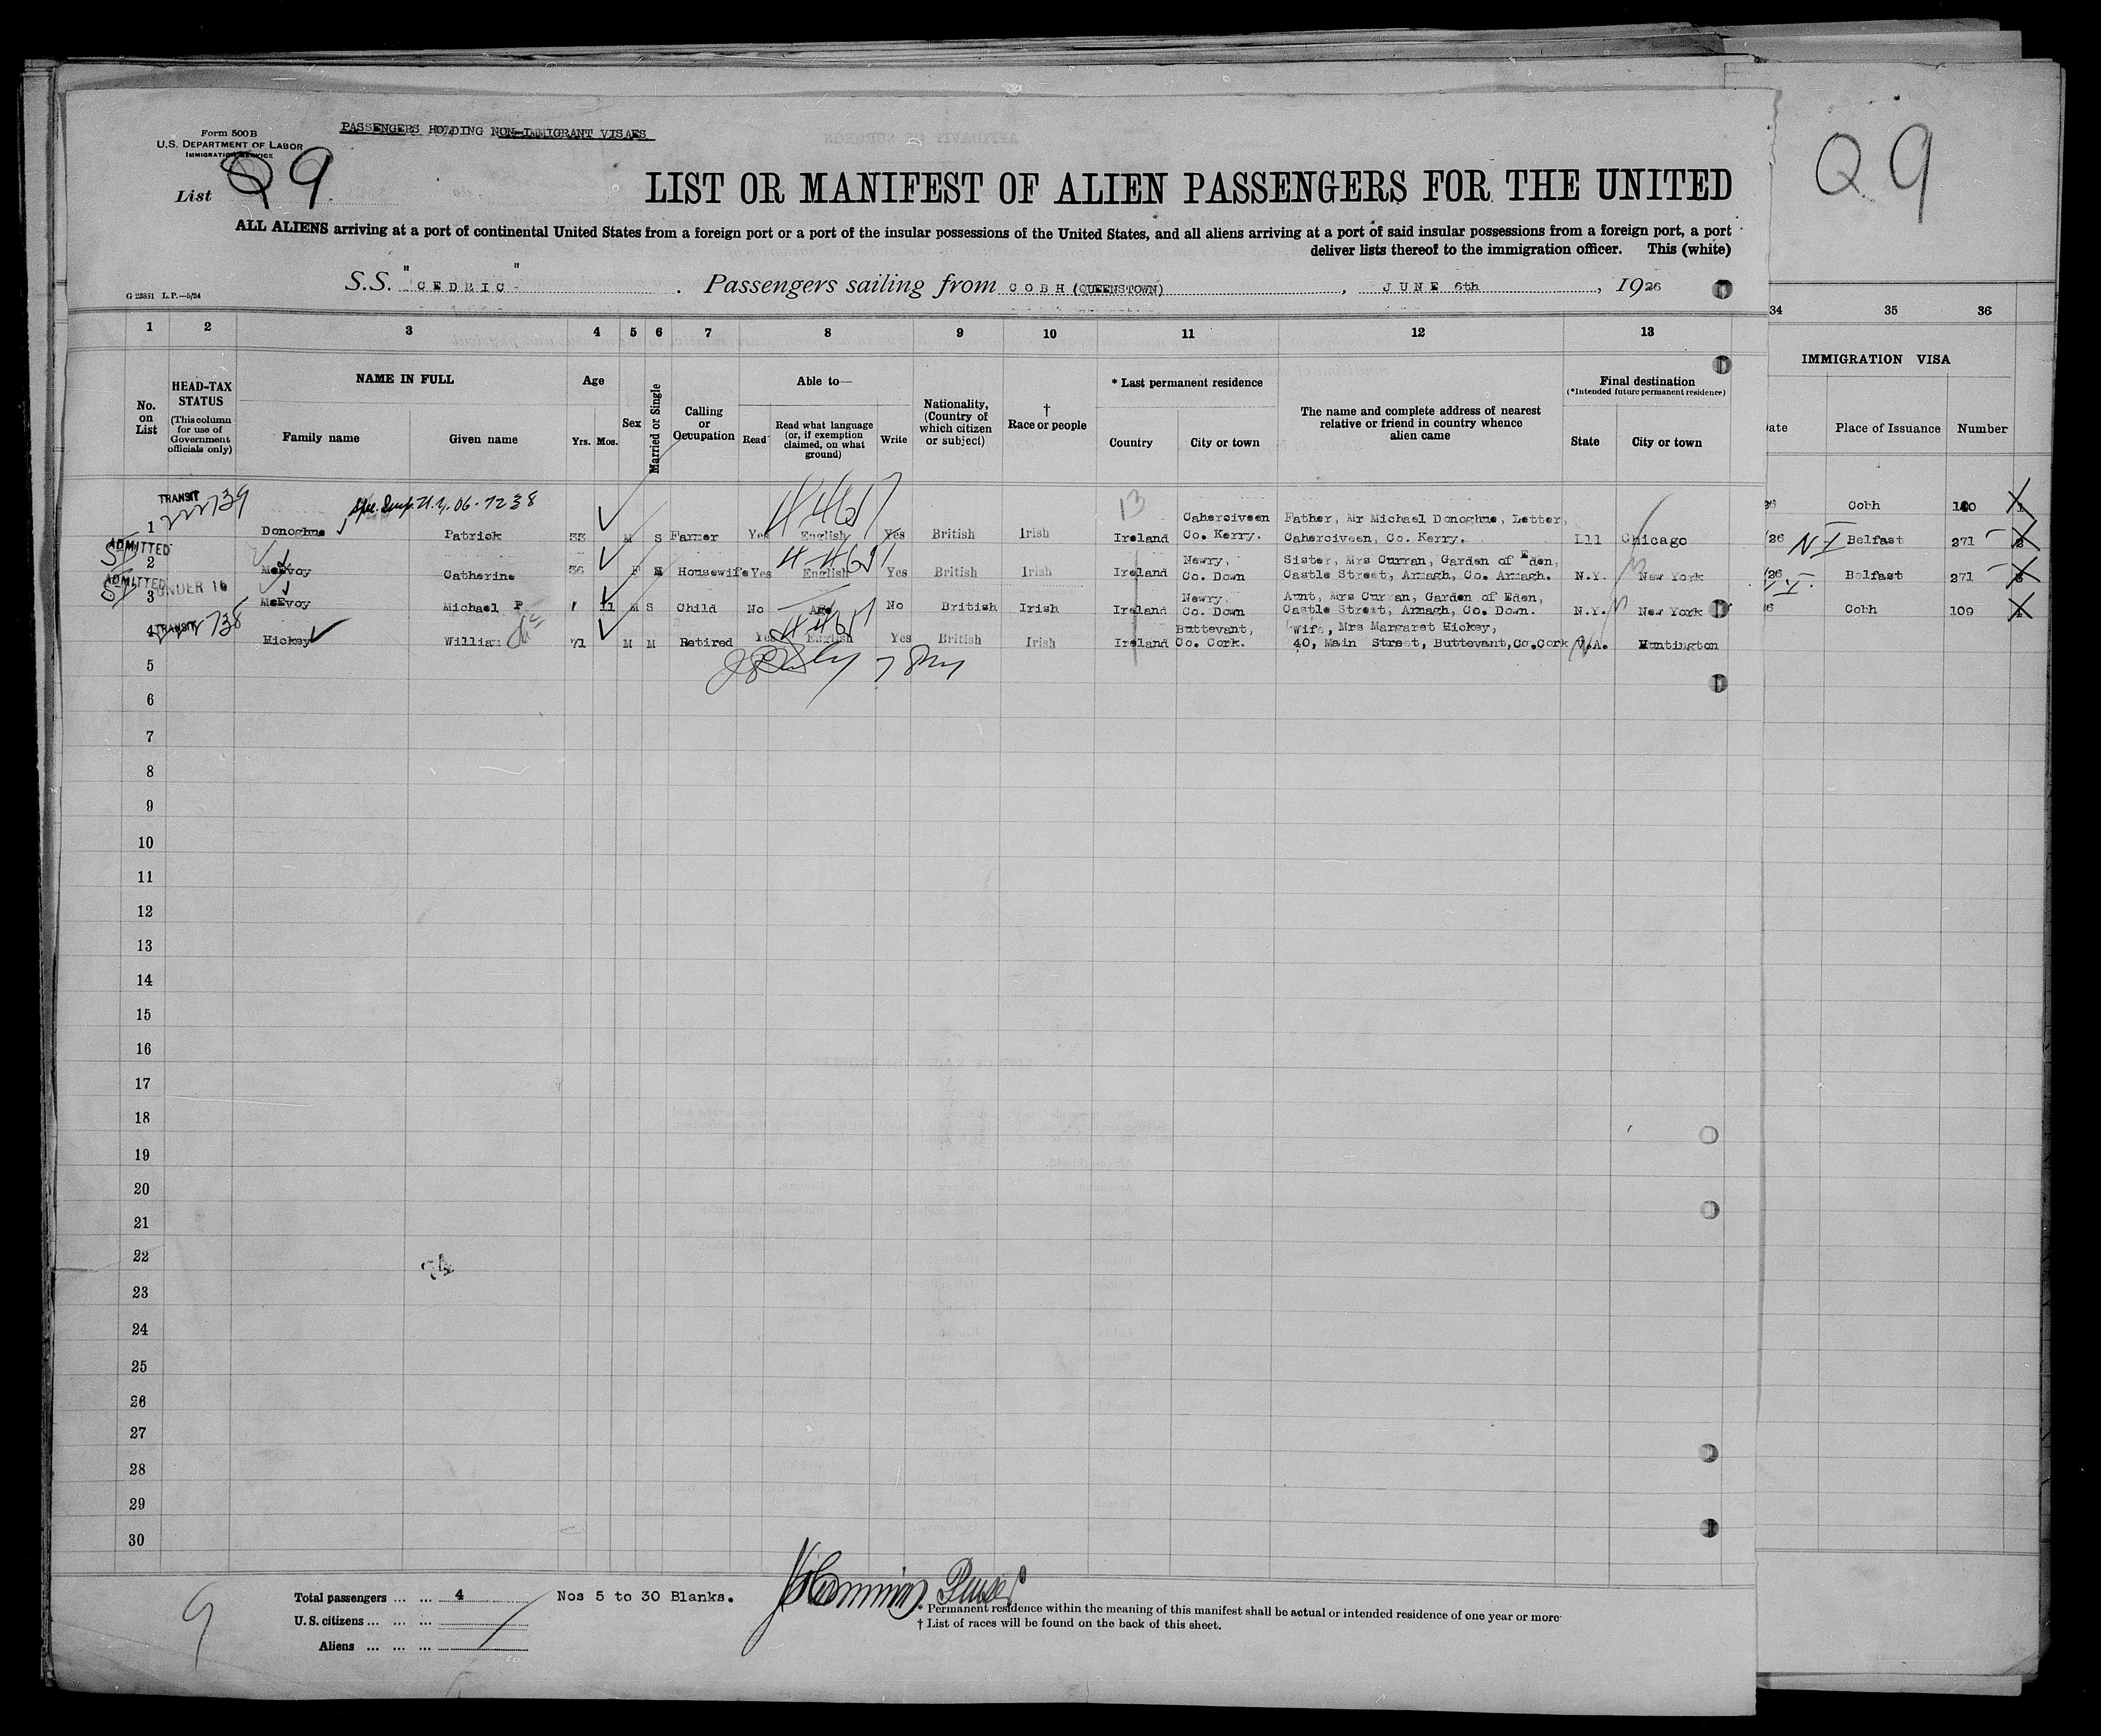 PASSENGERS HOLDING NON-IMMIGRANT VISAES
Form 500 B
U.S. DEPARTMENT OF LABOR
IMMIGRATION SERVICE
List Q 9
Q 9
LIST OR MANIFEST OF ALIEN PASSENGERS FOR THE UNITED
ALL ALIENS arriving at a port of continental United States from a foreign port or a port of the insular possessions of the United States, and all aliens arriving at a port of said insular possessions from a foreign port, a port
deliver lists thereof to the immigration officer. This (white)
S.S. "CEDRIC" . Passengers sailing from COBH (QUEENSTOWN) , JUNE 6th , 1926
G 23881 L.P.—5/24
1 2 3 4 5 6 7 8 9 10 11 12 13 34 35 36
No. on List
HEAD-TAX STATUS
(This column for use of Government officials only)
NAME IN FULL
Family name Given name
Age
Yrs. Mos.
Sex
Married or Single
Calling or Occupation
Able to—
Read
Read what language (or, if exemption claimed, on what ground)
Write
Nationality, (Country of which citizen or subject)
† Race or people
* Last permanent residence
Country City or town
The name and complete address of nearest relative or friend in country whence alien came
Final destination
(*Intended future permanent residence)
State City or town
IMMIGRATION VISA
Date Place of Issuance Number
TRANSIT 739
1 Donoghue Patrick 33 M S Farmer Yes English Yes British Irish Ireland Caherciveen Co. Kerry. Father, Mr Michael Donoghue, Letter, Caherciveen, Co. Kerry. Ill Chicago 26 Cobh 1
ADMITTED
2 McEvoy Catherine 36 F Housewife Yes English Yes British Irish Ireland Newry, Co. Down Sister, Mrs Curran, Garden of Eden, Castle Street, Armagh, Co. Armagh. N.Y. New York /26 NI Belfast 271 2
ADMITTED UNDER 16
3 McEvoy Michael P 11 M S Child No Age No British Irish Ireland Newry, Co. Down Aunt, Mrs Curran, Garden of Eden, Castle Street, Armagh, Co. Down. N.Y. New York /26 Belfast 271 3
TRANSIT 738
4 Hickey William 71 M M Retired Yes English Yes British Irish Ireland Buttevant, Co. Cork. Wife, Mrs Margaret Hickey, 40, Main Street, Buttevant, Co.Cork V.A. Huntington 6 Cobh 109 4
5
6
7
8
9
10
11
12
13
14
15
16
17
18
19
20
21
22
23
24
25
26
27
28
29
30
Total passengers ... ... 4 Nos 5 to 30 Blanks.
U.S. citizens ... ... ...
Aliens ... ... ...
Purser
* Permanent residence within the meaning of this manifest shall be actual or intended residence of one year or more
† List of races will be found on the back of this sheet.
9